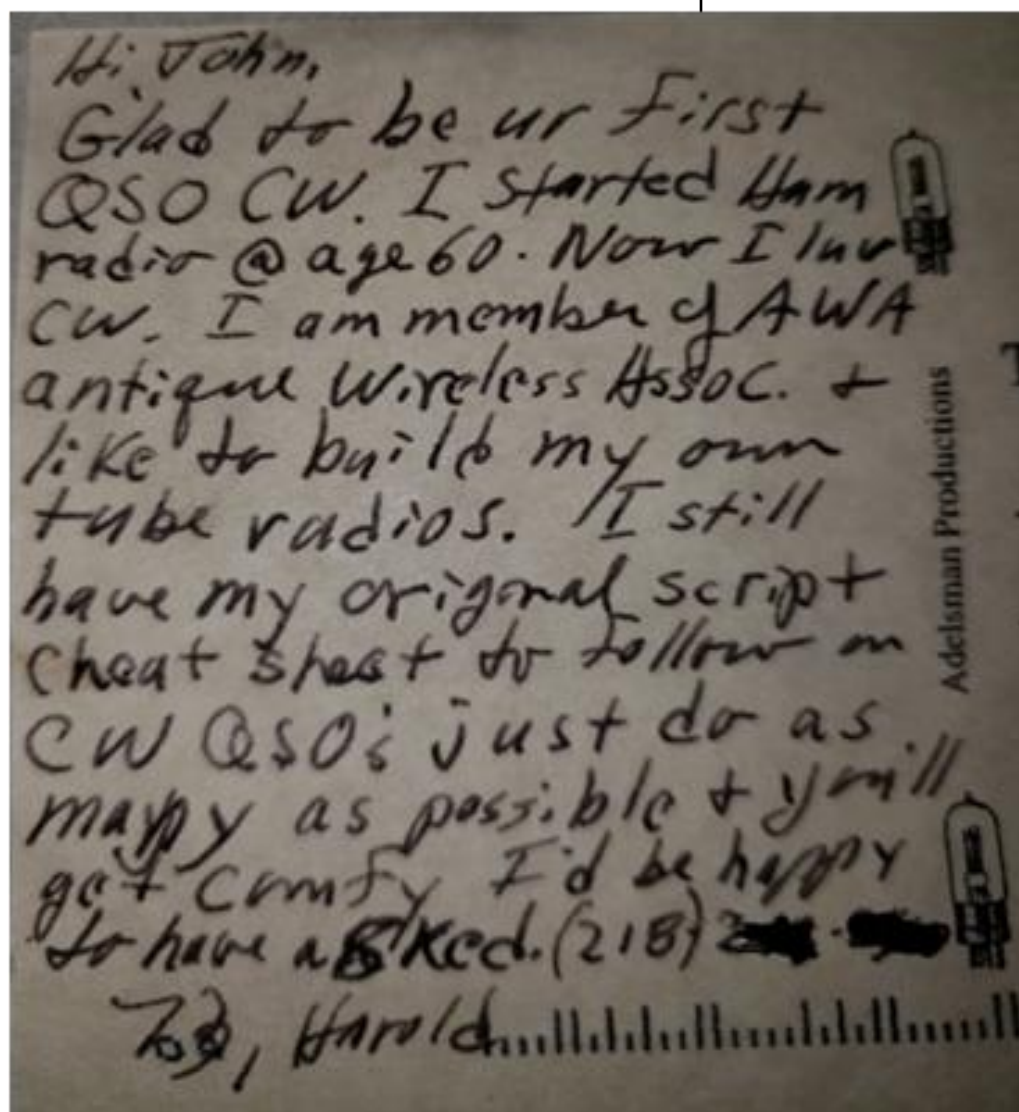 Hi John,
Glad to be ur first
QSO CW. I started Ham
radio @ age 60. Now I luv
CW. I am member of AWA
antique Wireless Assoc. +
like to build my own
tube radios. I still
have my original script
cheat sheet to follow on
CW QSO's just do as
many as possible + you'll
get comfy I'd be happy
to have a sked. (218) 2
73, Harold
Adelsman Productions